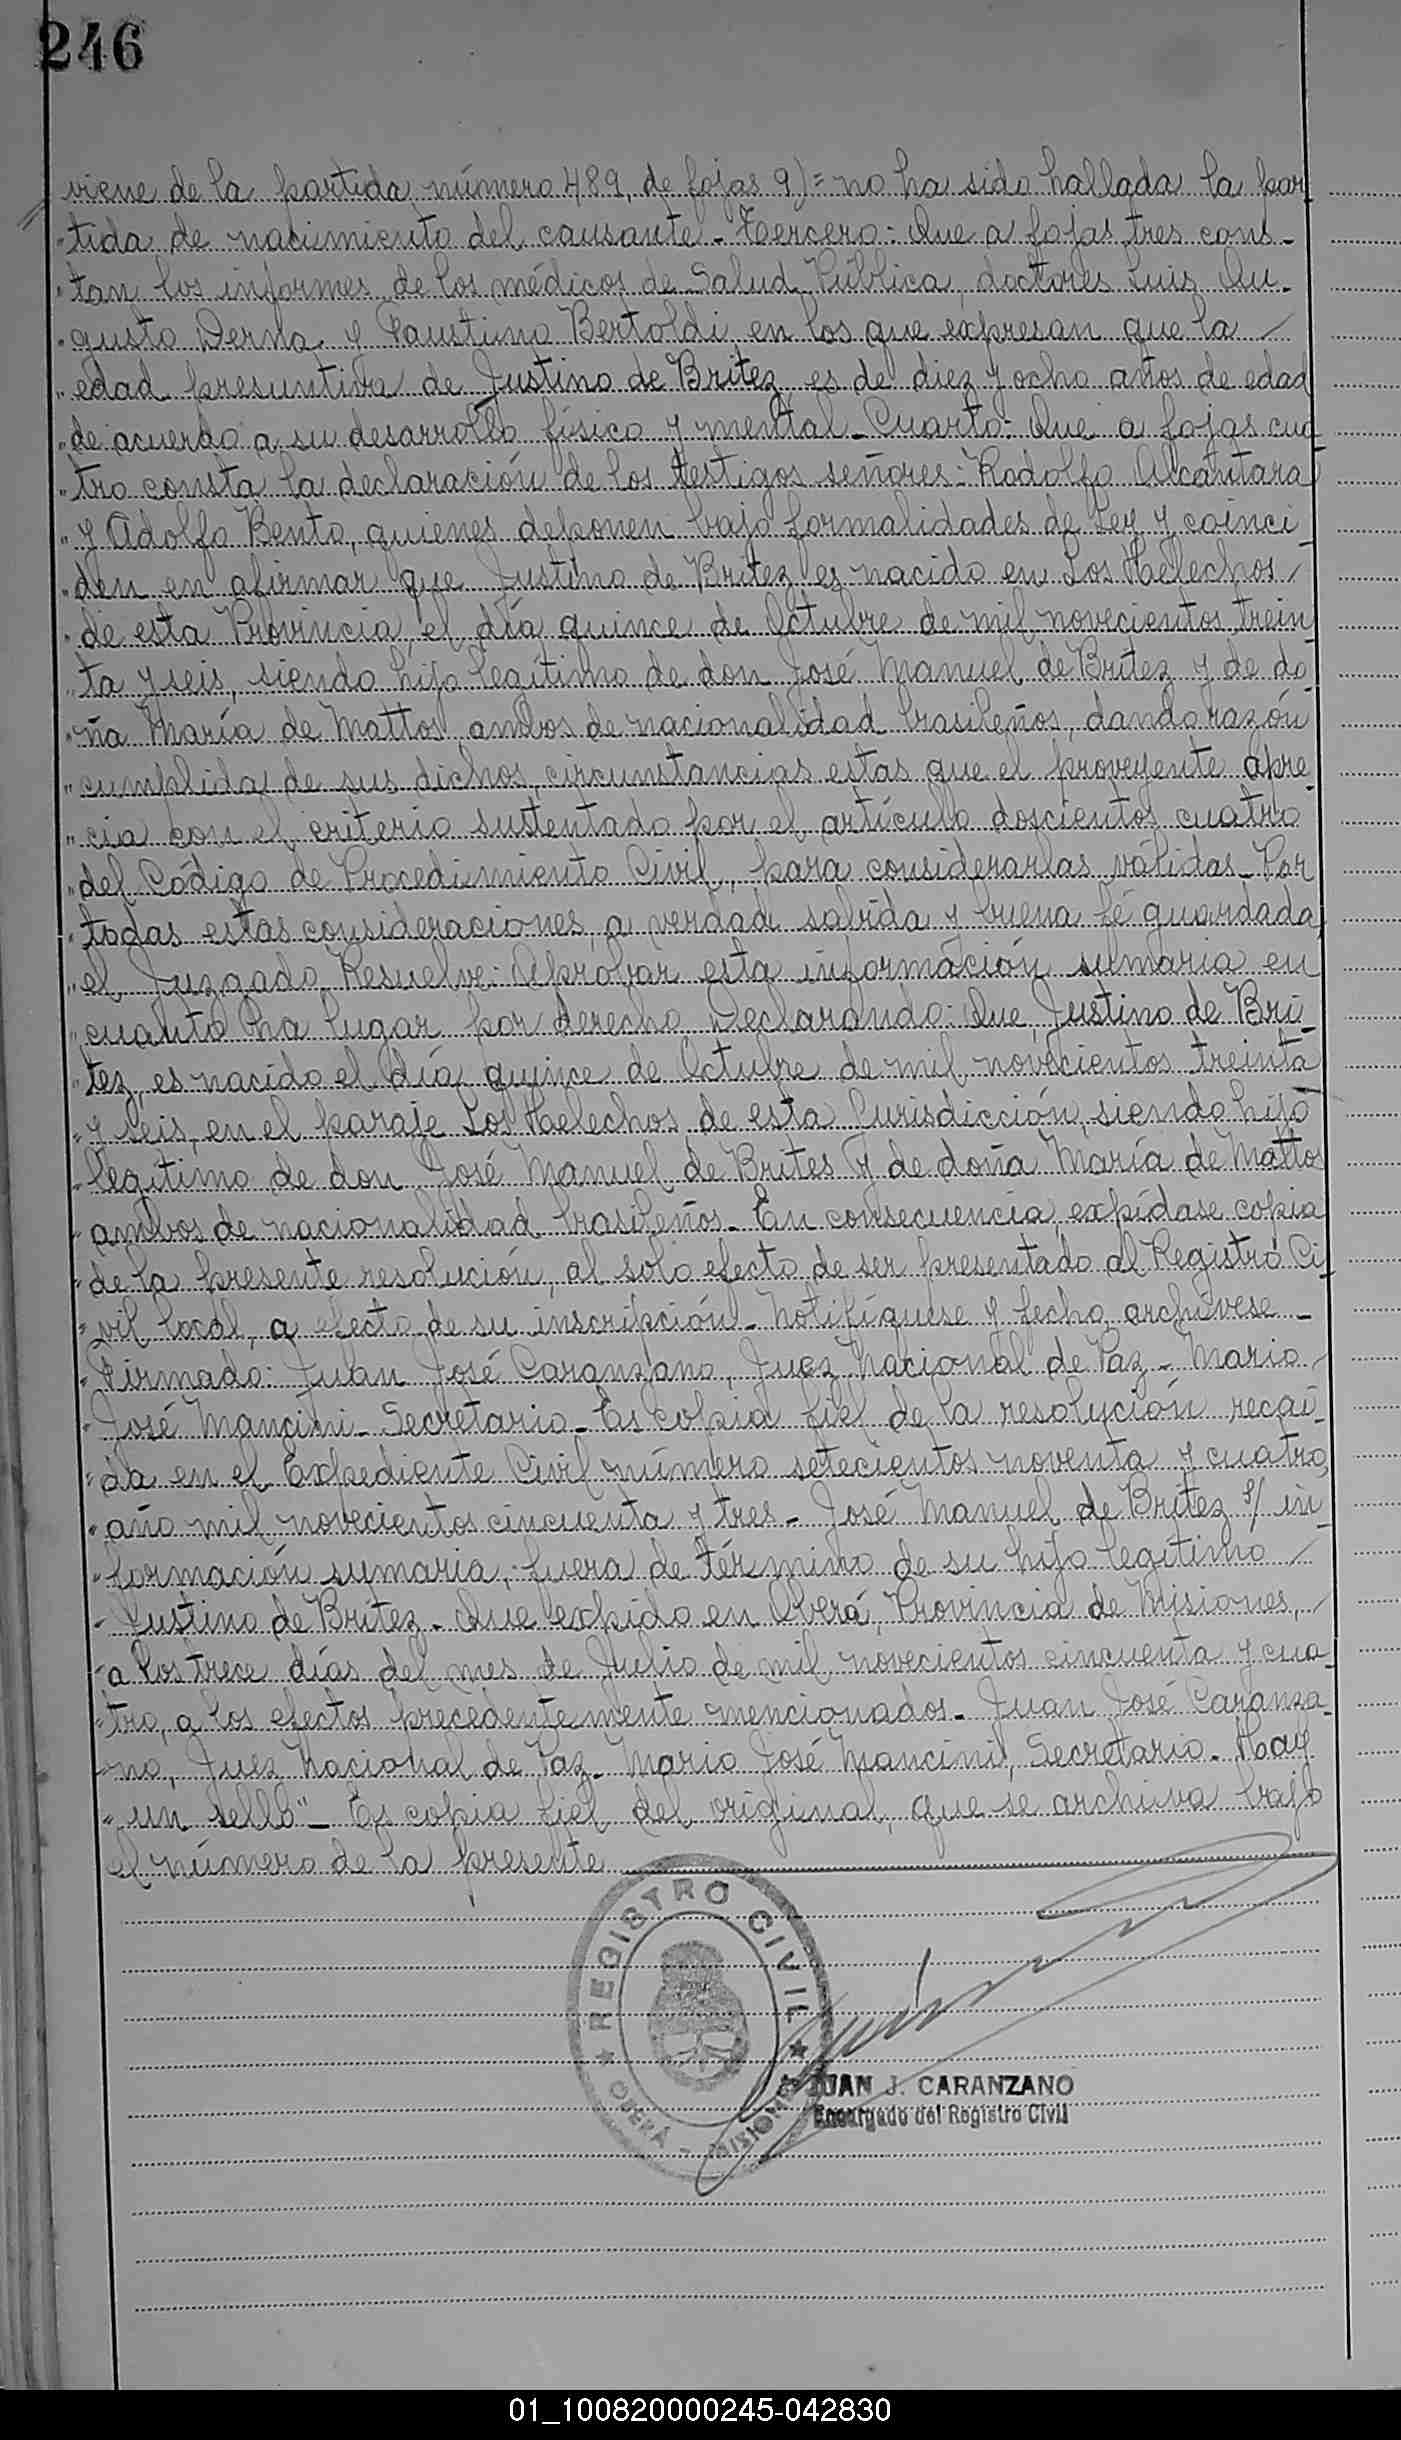 246
viene de la partida número 489, de fojas 9)= no ha sido hallada la par
"tida de nacimiento del causante - Tercero: Que a fojas tres cons-
"tan los informes de los médicos de Salud Pública, doctores Luis Au-
"gusto Derna y Faustino Bertoldi en los que expresan que la /
"edad presuntiva de Justino de Britez es de diez y ocho años de edad
"de acuerdo a su desarrollo físico y mental - Cuarto: Que a fojas cua
"tro consta la declaración de los testigos señores: Rodolfo Alcántara
"y Adolfo Bento, quienes deponen bajo formalidades de Ley y coinci
"den en afirmar que Justino de Britez es nacido en Los Helechos /
"de esta Provincia el día quince de Octubre de mil novecientos trein
"ta y seis, siendo hijo legítimo de don José Manuel de Britez y de do
"ña María de Mattos, ambos de nacionalidad brasileños, dando razón
"cumplida de sus dichos, circunstancias estas que el proveyente apre
"cia con el criterio sustentado por el artículo doscientos cuatro
"del Código de Procedimiento Civil, para considerarlas válidas - Por
"todas estas consideraciones, a verdad sabida y buena fé guardada,
"el Juzgado Resuelve: Aprobar esta información sumaria en
"cuanto ha lugar por derecho, Declarando: Que Justino de Bri
"tez, es nacido el día quince de Octubre de mil novecientos treinta
"y seis, en el paraje Los Helechos de esta Jurisdicción, siendo hijo
"legítimo de don José Manuel de Brites y de doña María de Mattos
"ambos de nacionalidad brasileños - En consecuencia, expídase copia
"de la presente resolución, al solo efecto de ser presentado al Registro Ci
"vil local, a efecto de su inscripción - Notifíquese y fecho, archívese -
"Firmado: Juan José Caranzano, Juez Nacional de Paz - Mario /
"José Mancini - Secretario - Es copia fiel de la resolución recaí-
"da en el Expediente Civil número setecientos noventa y cuatro,
"año mil novecientos cincuenta y tres - José Manuel de Britez s/ in
"formación sumaria, fuera de término de su hijo legítimo /
"Justino de Britez - Que expido en Oberá, Provincia de Misiones, /
"a los trece días del mes de Julio de mil novecientos cincuenta y cua-
"tro, a los efectos precedentemente mencionados - Juan José Caranza-
"no, Juez Nacional de Paz - Mario José Mancini, Secretario - Hay
"un sello" - Es copia fiel del original, que se archiva bajo
el número de la presente
REGISTRO CIVIL
OBERÁ - MISIONES
JUAN J. CARANZANO
Encargado del Registro Civil
01_100820000245-042830